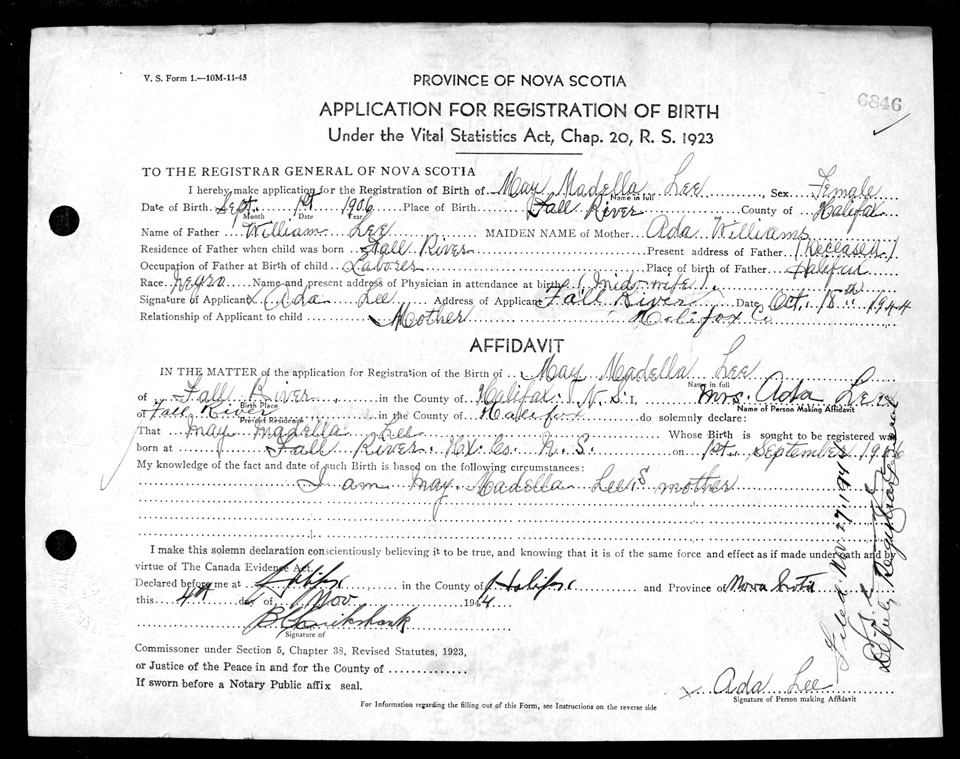 V. S. Form 1.—10M-11-43
PROVINCE OF NOVA SCOTIA
6846
APPLICATION FOR REGISTRATION OF BIRTH
Under the Vital Statistics Act, Chap. 20, R. S. 1923
TO THE REGISTRAR GENERAL OF NOVA SCOTIA
I hereby make application for the Registration of Birth of May Madella Lee Sex Female
Name in full
Date of Birth Sept. 1st 1906 Place of Birth Fall River County of Halifax
Month Date Year
Name of Father William Lee MAIDEN NAME of Mother Ada Williams
Residence of Father when child was born Fall River Present address of Father (Deceased)
Occupation of Father at Birth of child Laborer Place of birth of Father Halifax
Race Negro Name and present address of Physician in attendance at birth (Midwife)
Signature of Applicant x (Ada Lee Address of Applicant Fall River Date Oct. 18th 1944
Relationship of Applicant to child Mother Halifax Co
AFFIDAVIT
IN THE MATTER of the application for Registration of the Birth of May Madella Lee
Name in full
of Fall River in the County of Halifax N. S. I, Mrs. Ada Lee
Birth Place
Name of Person Making Affidavit
of Fall River in the County of Halifax do solemnly declare:
Present Residence
That May Madella Lee Whose Birth is sought to be registered was
born at Fall River Hx. Co. N. S. on 1st. September 1906
My knowledge of the fact and date of such Birth is based on the following circumstances:
I am May Madella Lee's mother
I make this solemn declaration conscientiously believing it to be true, and knowing that it is of the same force and effect as if made under oath and by
virtue of The Canada Evidence Act.
Declared before me at Halifax in the County of Halifax and Province of Nova Scotia
this 4th day of Nov 1944
Signature of
Commissioner under Section 5, Chapter 38, Revised Statutes, 1923,
or Justice of the Peace in and for the County of
If sworn before a Notary Public affix seal.
x Ada Lee
Signature of Person making Affidavit
For Information regarding the filling out of this Form, see Instructions on the reverse side
Filed Nov. 27, 1944
Deputy Registrar General